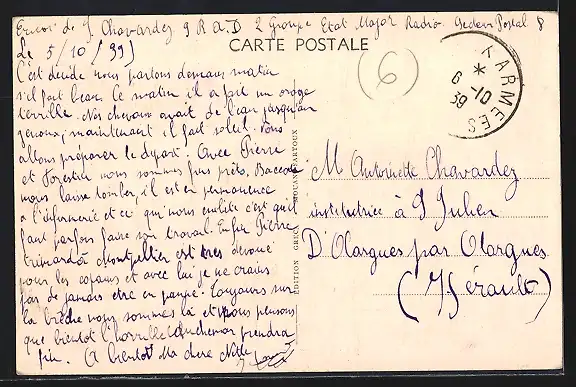 Envoi de J Chavardez 9 R.A.D 2 Groupe Etat Major Radio Secteur Postal 8
Le 5/10/39)
CARTE POSTALE
C'est décidé nous partons demain matin
s'il fait beau. Ce matin il a fait un orage
terrible. Nos chevaux avait de l'eau jusqu'au
genoux, maintenant il fait soleil. Nous
allons préparer le départ. Avec Pierre
et Forestier nous sommes fins prêts,
nous laisse tomber, il est en permanence
à l'infirmerie et ce qui nous c'est qu'il
faut parfois faire son travail. Enfin Pierre
Montpellier est très dévoué
pour les copains et avec lui je ne crains
pas de jamais être en panne. Toujours sur
la brèche nous sommes là et nous pensons
que bientôt l'horrible cauchemar prendra
fin. A bientôt Ma chère Nette
EDITION GRECA MOUANS-SARTOUX
(6)
T. ARMEES
*
6 -10
39
M Antoinette Chavardez
institutrice à S Julien
D'Olargues par Olargues
(Hérault)